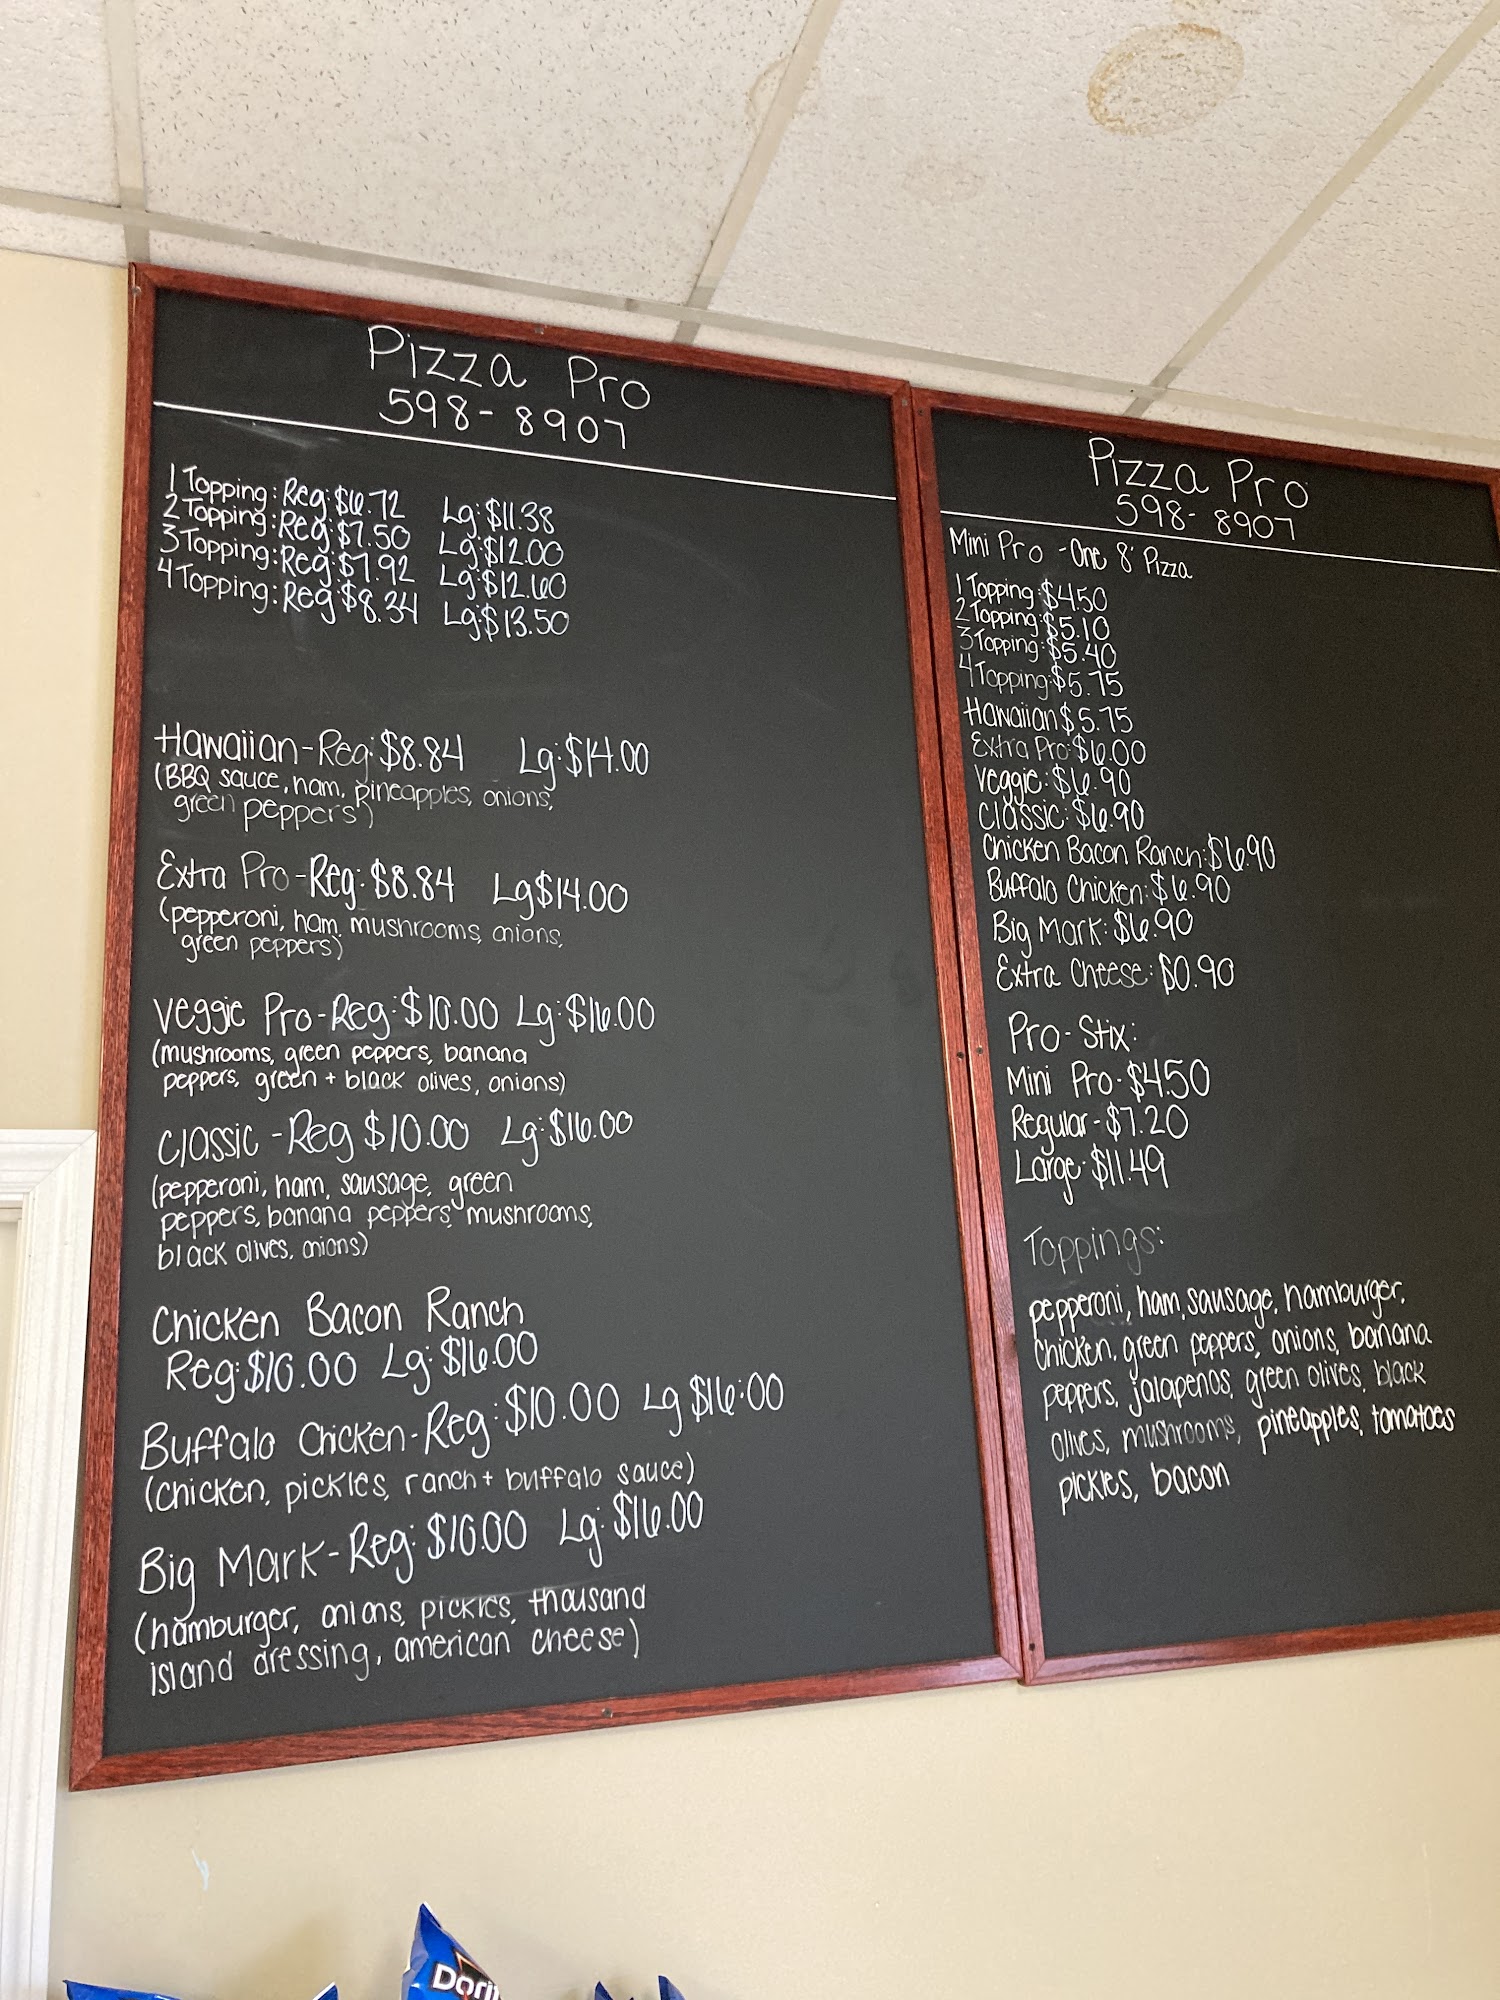 Pizza Pro
598-8907
1 Topping: Reg: $6.72 Lg: $11.38
2 Topping: Reg: $7.50 Lg: $12.00
3 Topping: Reg: $7.92 Lg: $12.60
4 Topping: Reg: $8.34 Lg: $13.50
Hawaiian - Reg: $8.84 Lg: $14.00
(BBQ sauce, ham, pineapples, onions,
green peppers)
Extra Pro - Reg: $8.84 Lg $14.00
(pepperoni, ham, mushrooms, onions,
green peppers)
Veggie Pro - Reg: $10.00 Lg: $16.00
(mushrooms, green peppers, banana
peppers, green + black olives, onions)
Classic - Reg $10.00 Lg: $16.00
(pepperoni, ham, sausage, green
peppers, banana peppers, mushrooms,
black olives, onions)
Chicken Bacon Ranch
Reg: $10.00 Lg: $16.00
Buffalo Chicken - Reg: $10.00 Lg $16:00
(chicken, pickles, ranch + buffalo sauce)
Big Mark - Reg: $10.00 Lg: $16.00
(hamburger, onions, pickles, thousand
island dressing, american cheese)
Pizza Pro
598-8907
Mini Pro - One 8" Pizza
1 Topping: $4.50
2 Topping: $5.10
3 Topping: $5.40
4 Topping: $5.75
Hawaiian $5.75
Extra Pro: $6.00
Veggie: $6.90
Classic: $6.90
Chicken Bacon Ranch: $6.90
Buffalo Chicken: $6.90
Big Mark: $6.90
Extra Cheese: $0.90
Pro-Stix:
Mini Pro - $4.50
Regular - $7.20
Large - $11.49
Toppings:
pepperoni, ham, sausage, hamburger,
chicken, green peppers, onions, banana
peppers, jalapenos, green olives, black
olives, mushrooms, pineapples, tomatoes
pickles, bacon